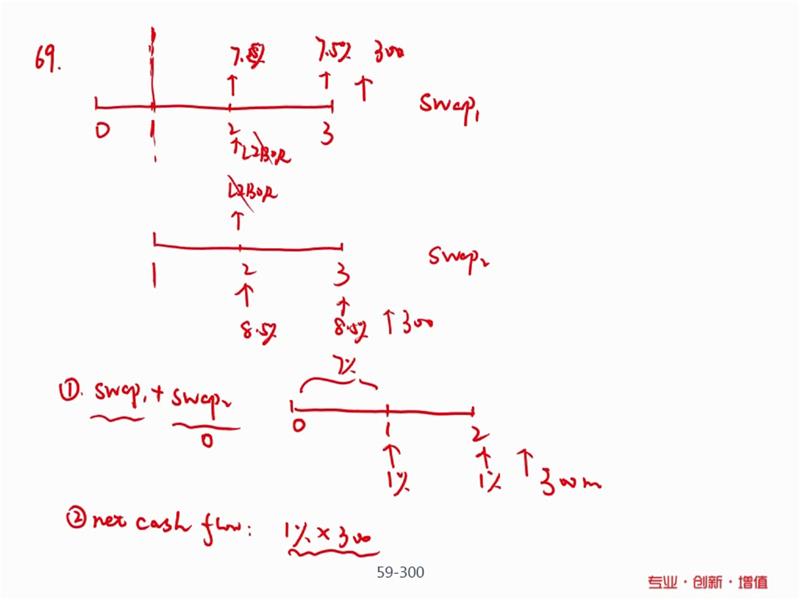 69.
7.5% 7.5% 300
0 1 2 3
Swap₁
LIBOR
LIBOR
1 2 3
Swap₂
8.5% 8.5% 300
7%
①. swap₁ + swap₂
0
0 1 2
1% 1% 300m
② net cash flow: 1% × 300
59-300
专业·创新·增值